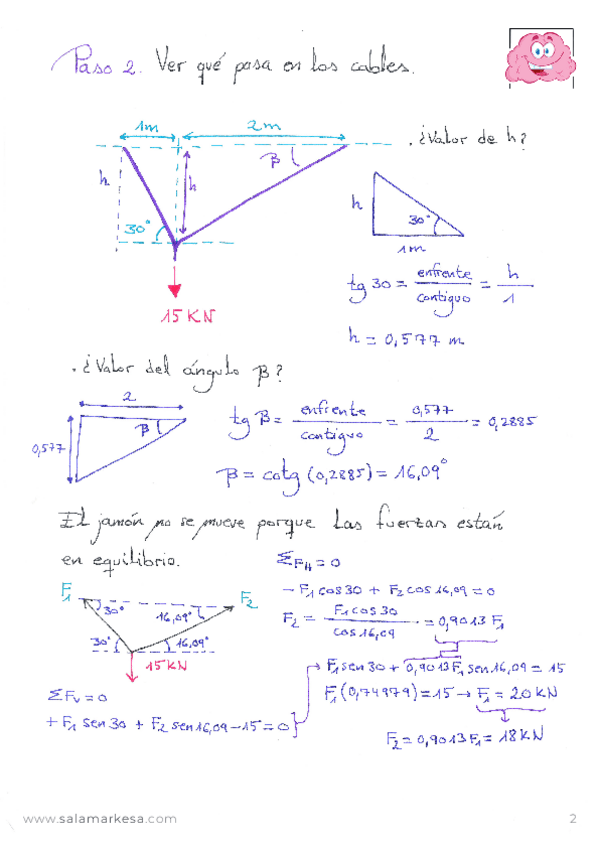 Paso 2. Ver qué pasa en los cables.
1m 2m
. ¿Valor de h?
β
h h
30°
15 KN
h 30°
1m
tg 30 = enfrente / contiguo = h / 1
h = 0,577 m
. ¿Valor del ángulo β?
2
β
0,577
tg β = enfrente / contiguo = 0,577 / 2 = 0,2885
β = cotg (0,2885) = 16,09°
El jamón no se mueve porque las fuerzas están
en equilibrio.
ΣF_H = 0
F1 30° 16,09° F2
30° 16,09°
15 KN
- F1 cos 30 + F2 cos 16,09 = 0
F2 = F1 cos 30 / cos 16,09 = 0,9013 F1
ΣFv = 0
+ F1 sen 30 + F2 sen 16,09 - 15 = 0
F1 sen 30 + 0,9013 F1 sen 16,09 = 15
F1 (0,74979) = 15 → F1 = 20 KN
F2 = 0,9013 F1 = 18 KN
www.salamarkesa.com 2